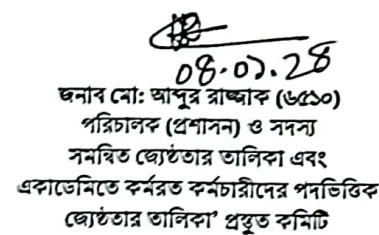 ০৪.০১.২৪
জনাব মো: আব্দুর রাজ্জাক (৬৫১০)
পরিচালক (প্রশাসন) ও সদস্য
সমন্বিত জ্যেষ্ঠতার তালিকা এবং
একাডেমিতে কর্মরত কর্মচারীদের পদভিত্তিক
জ্যেষ্ঠতার তালিকা' প্রস্তুত কমিটি